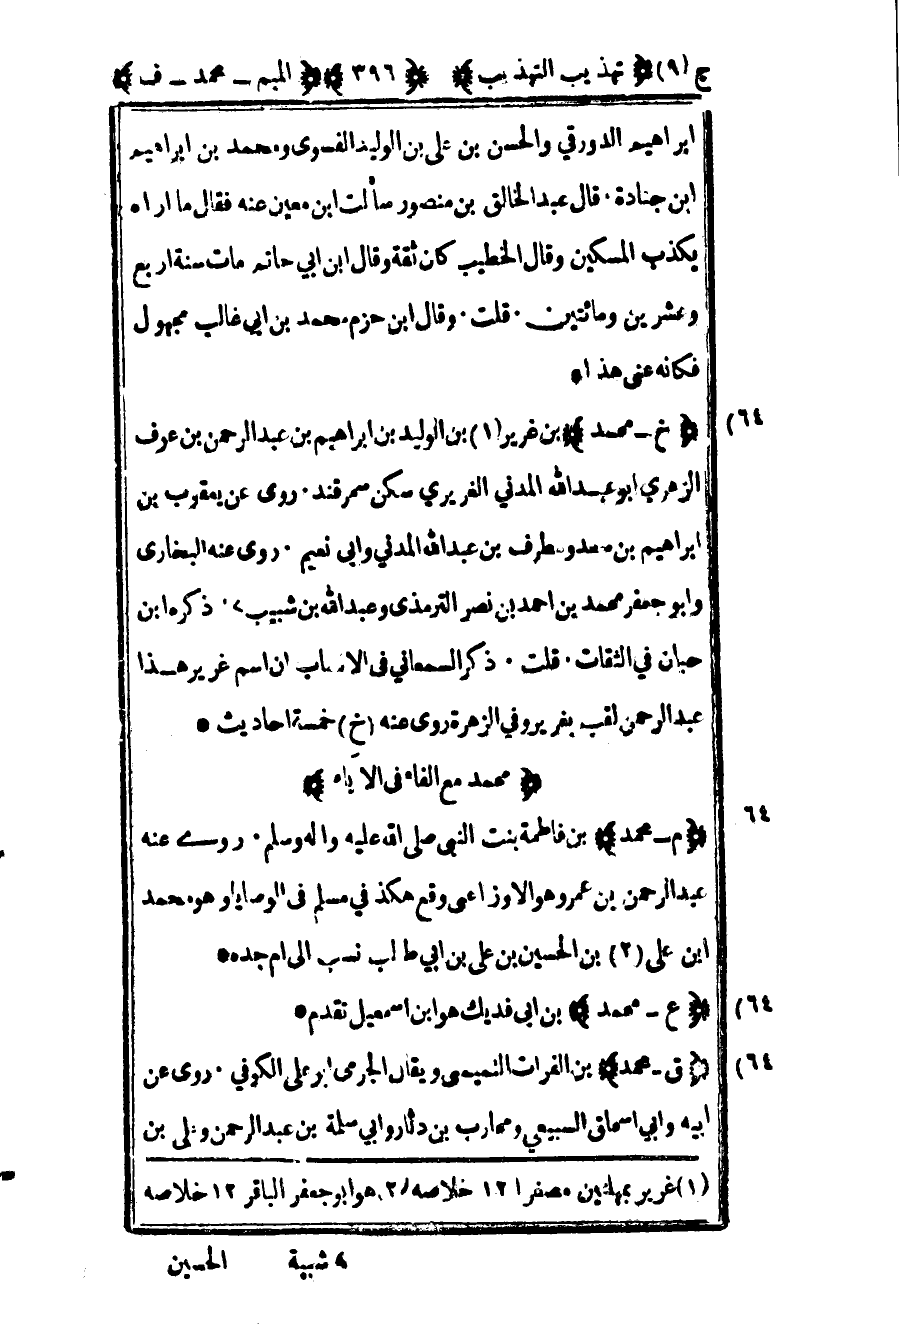 ج (٩) ﴿ تهذيب التهذيب ﴾ ﴿ ٣٩٦ ﴾ ﴿ الميم - محمد - ف ﴾
ابراهيم الدورقي والحسن بن على بن الوليد الفسوى ومحمد بن ابراهيم
ابن جنادة · قال عبد الخالق بن منصور سألت ابن معين عنه فقال ما اراه
يكذب المسكين وقال الخطيب كان ثقة وقال ابن ابي حاتم مات سنة اربع
وعشرين ومائتين · قلت · وقال ابن حزم محمد بن ابي غالب مجهول
فكانه عنى هذا ●
﴿ خ - محمد ﴾ بن غرير (١) بن الوليد بن ابراهيم بن عبد الرحمن بن عوف
(٦٤
الزهري ابو عبد الله المدني الغريري سكن سمرقند · روى عن يعقوب بن
ابراهيم بن سعد ومطرف بن عبد الله المدني وابى نعيم · روى عنه البخارى
وابو جعفر محمد بن احمد بن نصر الترمذى وعبد الله بن شبيب ٨ · ذكره ابن
حبان في الثقات · قلت · ذكر السمعاني فى الانساب ان اسم غرير هذا
عبد الرحمن لقب بغرير وفي الزهرة روى عنه (خ) خمسة احاديث ●
﴿ محمد مع الفاء فى الاباء ﴾
﴿ م - محمد ﴾ بن فاطمة بنت النبى صلى الله عليه واله وسلم · روى عنه
٦٤
عبد الرحمن بن عمرو هو الاوزاعى وقع هكذ في مسلم فى الوصايا وهو محمد
ابن على (٢) بن الحسين بن على بن ابي طالب نسب الى ام جده ●
﴿ ع - محمد ﴾ بن ابى فديك هو ابن اسمعيل تقدم ●
(٦٤
﴿ ق - محمد ﴾ بن الفرات التميمى ويقال الجرمى ابو على الكوفي · روى عن
(٦٤
ابيه وابي اسحاق السبيعي ومحارب بن دثار وابي سلمة بن عبد الرحمن وعلى بن
(١) غرير بمهملتين مصغرا ١٢ خلاصه /٢ هو ابو جعفر الباقر ١٢ خلاصه
٨ شبية الحسين